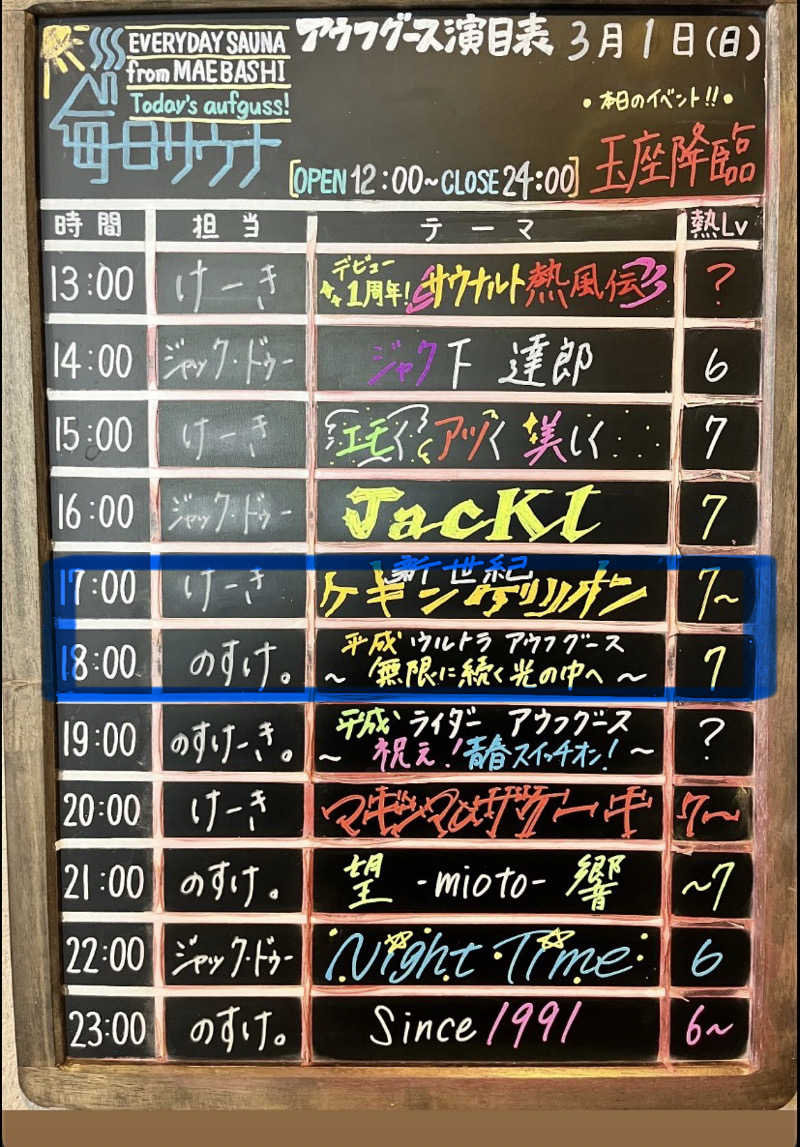 EVERYDAY SAUNA
from MAEBASHI
Today's aufguss!
毎日サウナ
アウフグース演目表 3月1日(日)
•本日のイベント!!•
玉座降臨
[OPEN12:00~CLOSE24:00]
時間 担当 テーマ 熱Lv
13:00 けーき デビュー1周年! サウナルト熱風伝 ?
14:00 ジャック・ドゥー ジャク下 達郎 6
15:00 けーき エモく アツく 美しく 7
16:00 ジャック・ドゥー JacKt 7
17:00 けーき 新世紀 ケギンゲリリオン 7~
18:00 のすけ。 平成 ウルトラ アウフグース ~無限に続く光の中へ~ 7
19:00 のすけーき。 平成 ライダー アウフグース ~祝え!青春スイッチオン!~ ?
20:00 けーき マギンマのザケーキ 7~
21:00 のすけ。 望 -mioto- 響 ~7
22:00 ジャック・ドゥー Night Time 6
23:00 のすけ。 Since 1991 6~